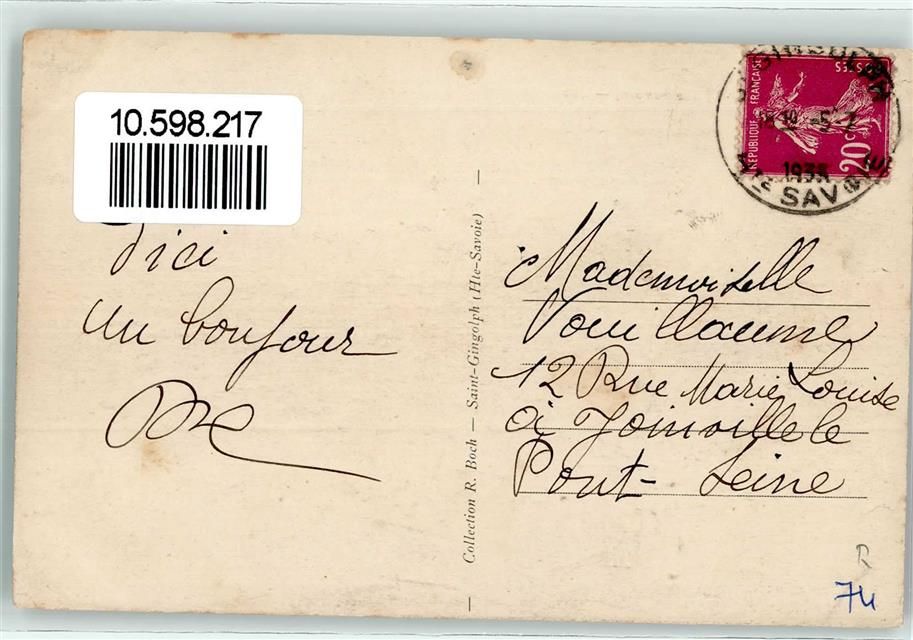 10.598.217
d'ici
un bonjour
Collection R. Boch — Saint-Gingolph (Hte-Savoie)
RÉPUBLIQUE FRANÇAISE
20 C
5-7
1935
Hte SAVOIE
Mademoiselle
Vouillaume
12 Rue Marie Louise
à Joinville le
Pont - Seine
P
74